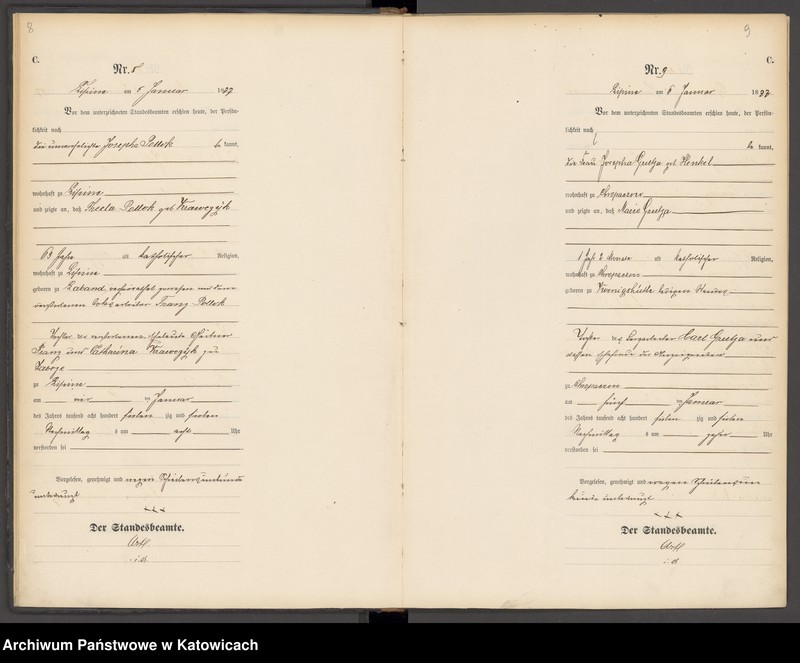 8
C.
Nr. 8
Lipine am 5 Januar 1887
Vor dem unterzeichneten Standesbeamten erschien heute, der Persön-
lichkeit nach
die unverehelichte Josepha Pollok be kannt,
wohnhaft zu Lipine
und zeigte an, daß Thecla Pollok geb Krawczyk
63 Jahr alt katholischer Religion,
wohnhaft zu Lipine
geboren zu verheirathet gewesen mit dem
verstorbenen Franz Pollok
Tochter der verstorbenen Eheleute
Franz und Catharina Krawczyk zu
Zabrze
zu Lipine
am vier ten Januar
des Jahres tausend acht hundert sieben zig und sieben
Nachmittag s um acht Uhr
verstorben sei
Vorgelesen, genehmigt und wegen Schreibensunkunde
unterkreuzt
+++
Der Standesbeamte.
9
C.
Nr. 9
Lipine am 6 Januar 1887
Vor dem unterzeichneten Standesbeamten erschien heute, der Persön-
lichkeit nach
be kannt,
die Frau Josepha Grutza geb Henkel
wohnhaft zu Chropaczow
und zeigte an, daß Marie Grutza
1 Jahr 2 Monate alt katholischer Religion,
wohnhaft zu Chropaczow
geboren zu Koenigshütte ledigen Standes
Tochter des Carl Grutza und
dessen Ehefrau der
zu Chropaczow
am fünf ten Januar
des Jahres tausend acht hundert sieben zig und sieben
Nachmittag s um Uhr
verstorben sei
Vorgelesen, genehmigt und wegen Schreibensun-
kunde unterkreuzt
+++
Der Standesbeamte.
Archiwum Państwowe w Katowicach